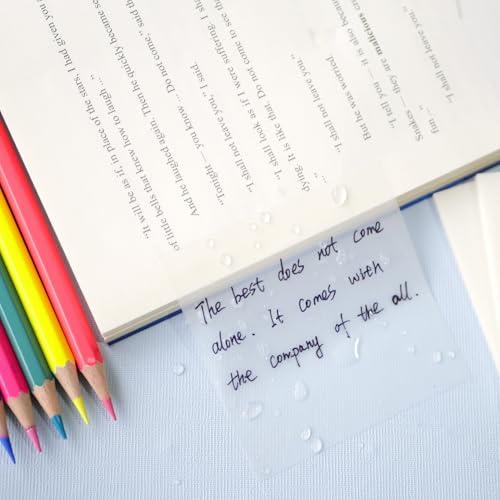 "It will be as if, in place of the stars, I had given you
of little bells that knew how to laugh ..."
And he laughed again. Then he quickly became se
"Tonight — you know ... Do not come," said th
"I shall not leave you," I said.
"I shall look as if I were suffering. I sh
dying. It is like that. Do not come to see
"I shall not leave you."
But he was worried.
"I tell you — it is also becau
Snakes — they are malicious cr
fun ..."
"I shall not leave you."
The best does not come
alone. It comes with
the company of the all.